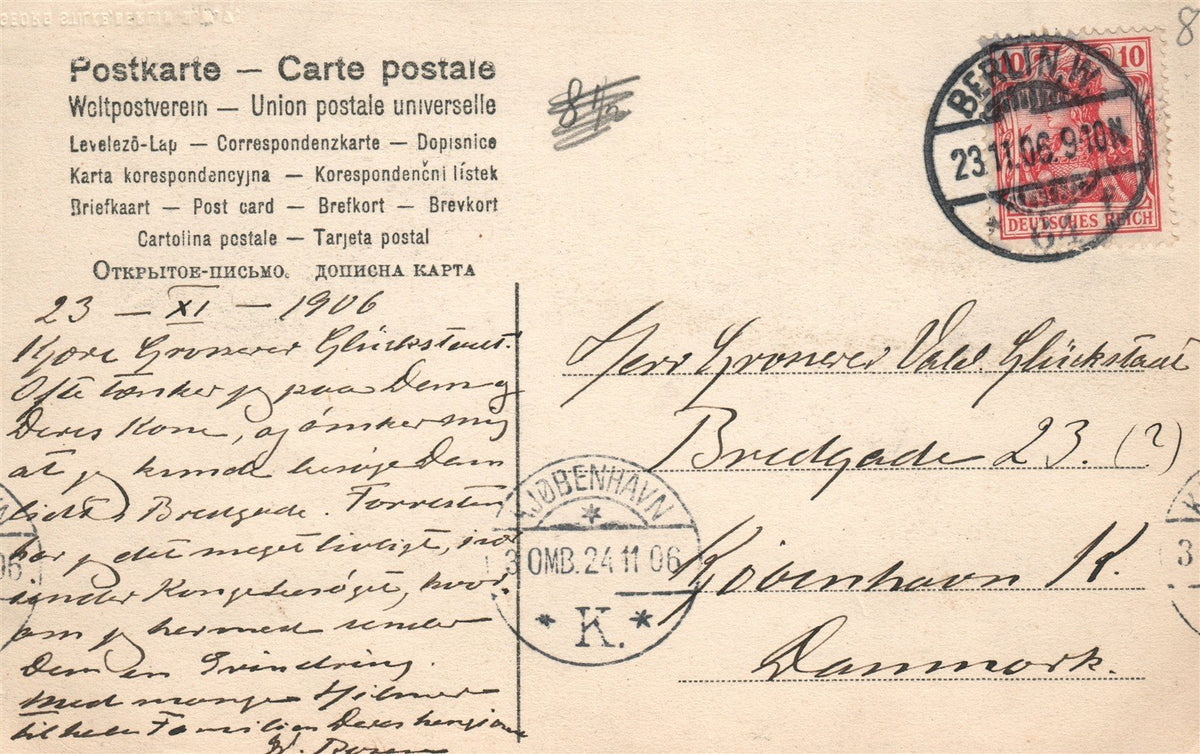 Postkarte — Carte postale
Weltpostverein — Union postale universelle
Levelező-Lap — Correspondenzkarte — Dopisnice
Karta korespondencyjna — Korespondenční lístek
Briefkaart — Post card — Brefkort — Brevkort
Cartolina postale — Tarjeta postal
Открытое-письмо. дописна карта
8 1/2
8
10 10
DEUTSCHES REICH
BERLIN. W.
23.11.06. 9-10N
* 64
23 — XI — 1906
Kjære Grosserer Glückstadt.
Ofte tænker jeg paa Dem og
Deres Kone, og ønsker mig
at jeg kunde besøge Dem
lidt Bredgade. Forresten
har jeg det meget livligt,
under Kongebesøget, hvor-
om jeg hermed sender
Dem en Erindring.
Med mange Hilsner
til hele Familien Deres hengivne
Herr Grosserer Vald. Glückstadt
Bredgade 23. (?)
Kjöbenhavn K.
Danmark.
KJØBENHAVN
3 OMB. 24 11 06
* K. *
N
06
K
3